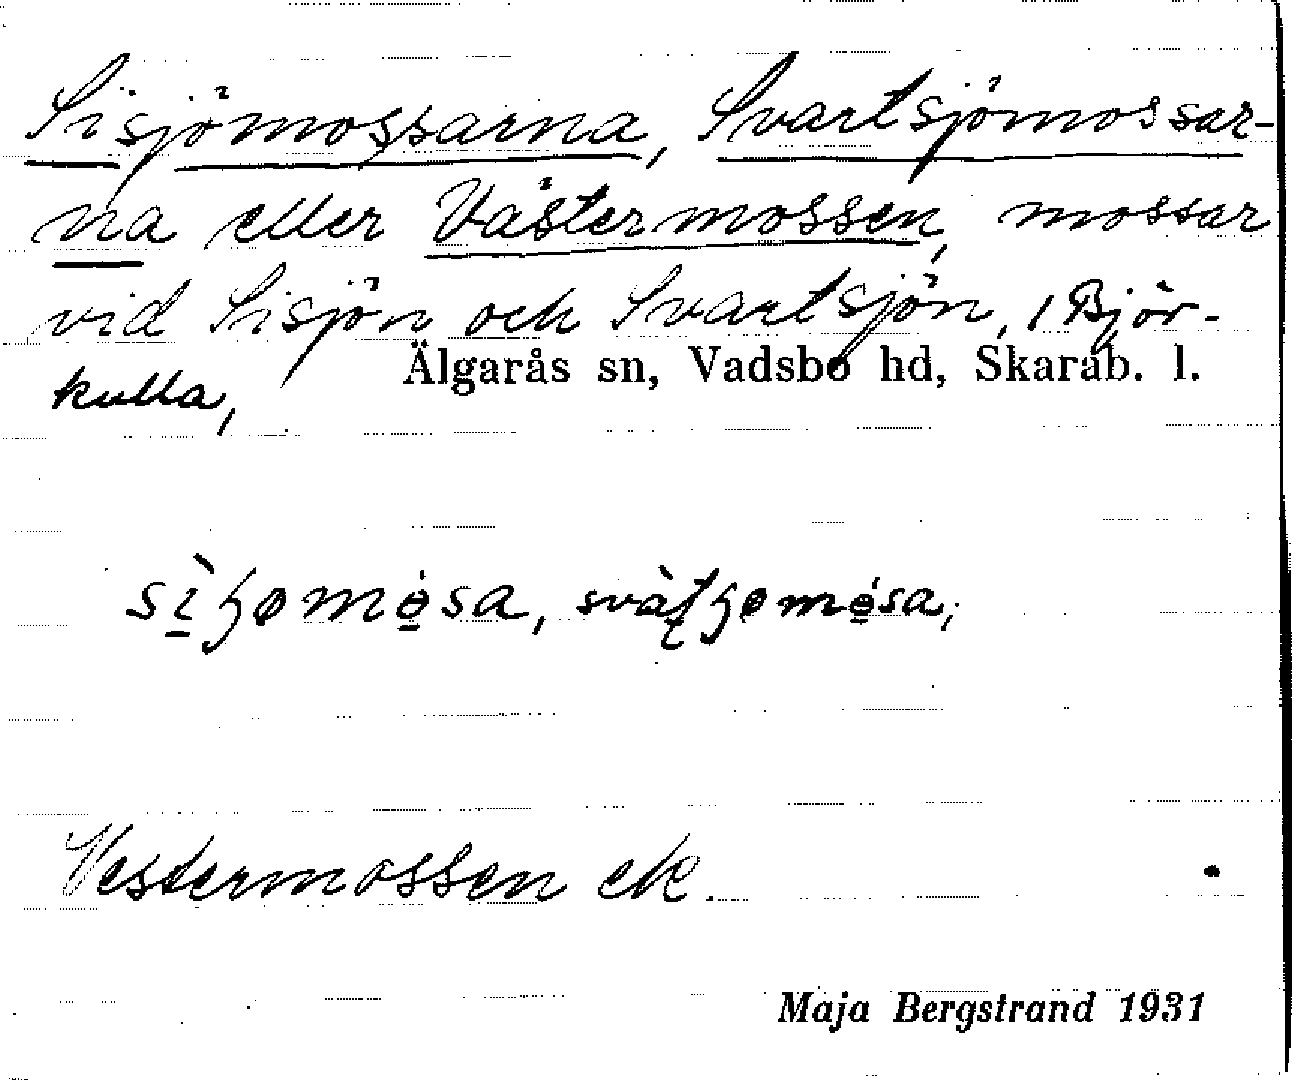 Sisjömossarna, Svartsjömossar-
na eller Västermossen, mossar
vid Sisjön och Svartsjön, i Björ-
Älgarås sn, Vadsbo hd, Skarab. l.
kulla,
Vestermossen ek.
Maja Bergstrand 1931